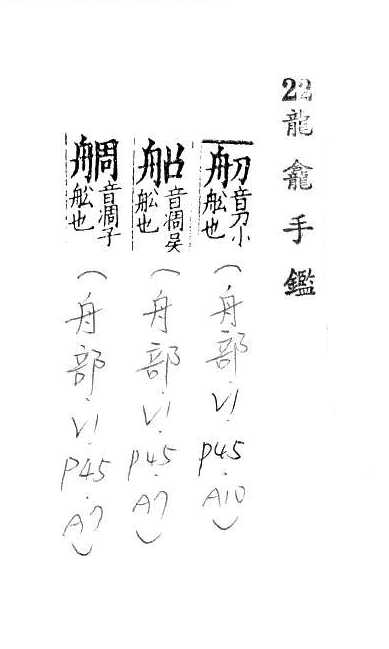 22龍龕手鑑
舠音刀小舩也
(舟部.VI.P45.A10)
音凋吴舩也
(舟部.VI.P45.A7)
䑬音凋子舩也
(舟部.VI.P45.A7)